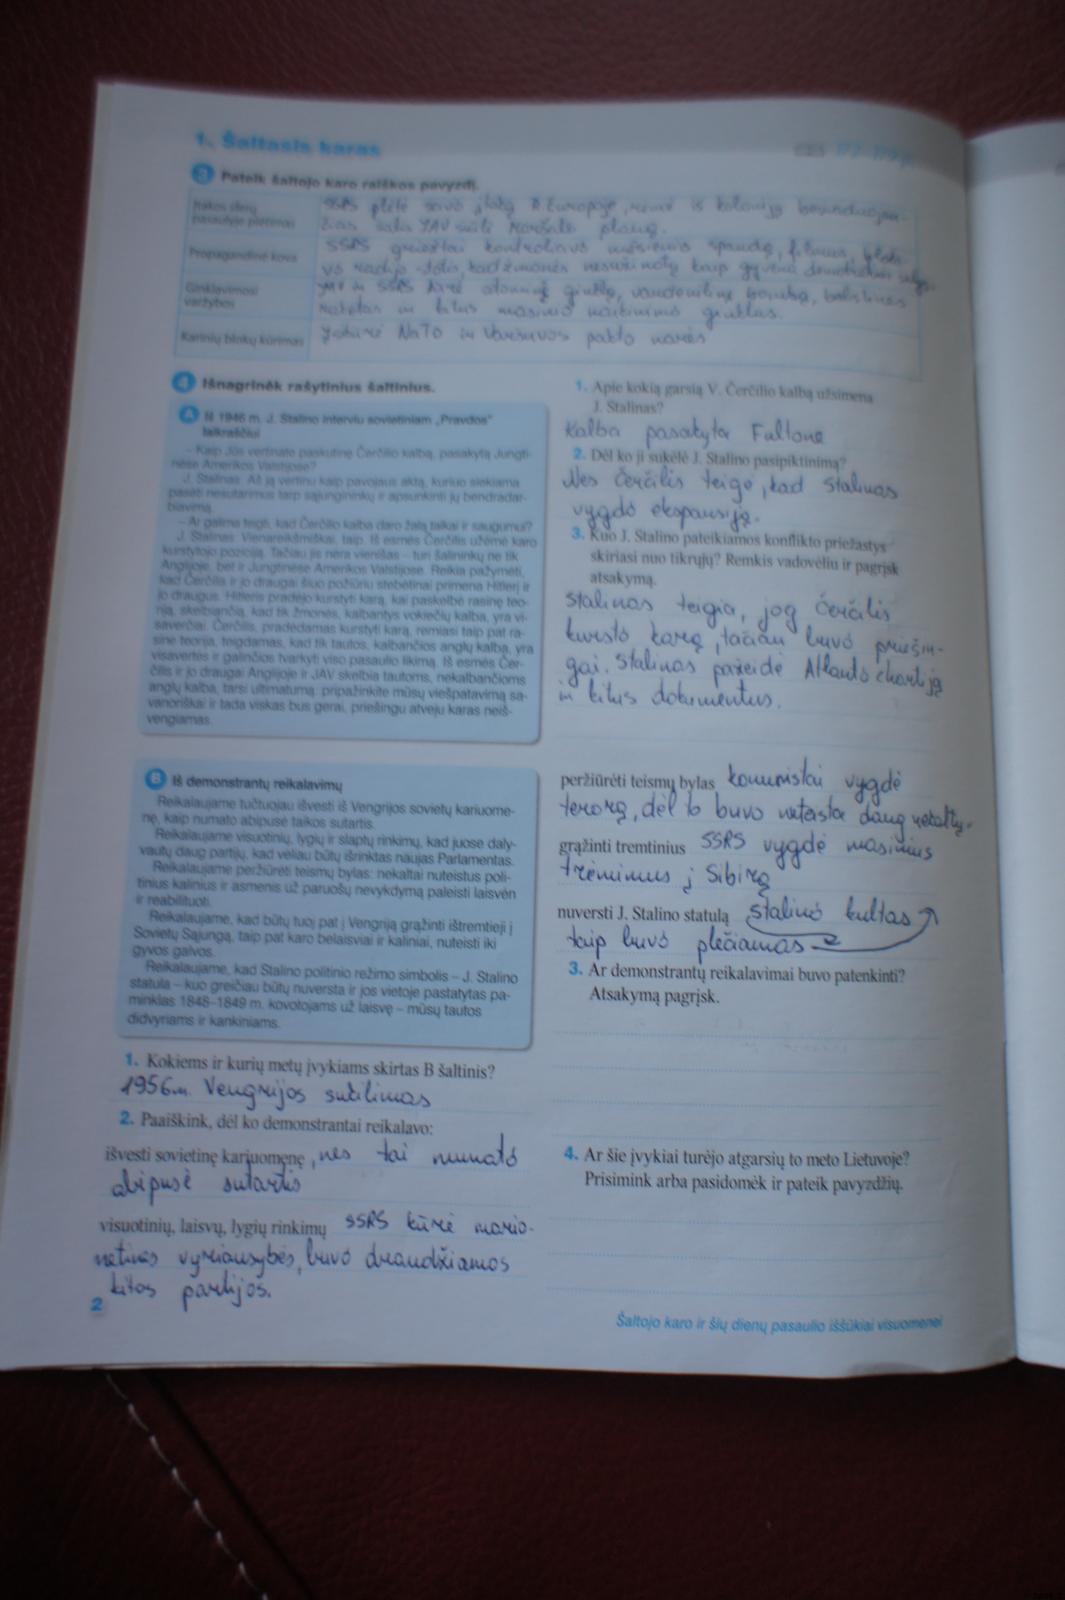 1. Šaltasis karas
3 Pateik šaltojo karo raiškos pavyzdį.
Įtakos sferų
pasaulyje plėtimas
SSRS plėtė savo įtaką R. Europoje, rėmė iš kolonijų
JAV Maršalo planą.
Propagandinė kova
SSRS griežtai kontroliavo spaudą, filmus,
vo radijo stotis, kad žmonės nesužinotų kaip gyvena
Ginklavimosi
varžybos
JAV ir SSRS kūrė atominį ginklą, vandenilinę bombą, balistines
raketas ir kitus masinio naikinimo ginklus.
Karinių blokų kūrimas
Įkūrė NATO ir Varšuvos pakto narės
4 Išnagrinėk rašytinius šaltinius.
A Iš 1946 m. J. Stalino interviu sovietiniam „Pravdos“
laikraščiui
– Kaip Jūs vertinate paskutinę Čerčilio kalbą, pasakytą Jungti-
nėse Amerikos Valstijose?
J. Stalinas: Aš ją vertinu kaip pavojaus aktą, kuriuo siekiama
pasėti nesutarimus tarp sąjungininkų ir apsunkinti jų bendradar-
biavimą.
– Ar galima teigti, kad Čerčilio kalba daro žalą taikai ir saugumui?
J. Stalinas: Vienareikšmiškai, taip. Iš esmės Čerčilis užėmė karo
kurstytojo poziciją. Tačiau jis nėra vienišas – turi šalininkų ne tik
Anglijoje, bet ir Jungtinėse Amerikos Valstijose. Reikia pažymėti,
kad Čerčilis ir jo draugai šiuo požiūriu stebėtinai primena Hitlerį ir
jo draugus. Hitleris pradėjo kurstyti karą, kai paskelbė rasinę teo-
riją, skelbiančią, kad tik žmonės, kalbantys vokiečių kalba, yra vi-
saverčiai. Čerčilis, pradėdamas kurstyti karą, remiasi taip pat ra-
sine teorija, teigdamas, kad tik tautos, kalbančios anglų kalba, yra
visavertės ir galinčios tvarkyti viso pasaulio likimą. Iš esmės Čer-
čilis ir jo draugai Anglijoje ir JAV skelbia tautoms, nekalbančioms
anglų kalba, tarsi ultimatumą: pripažinkite mūsų viešpatavimą sa-
vanoriškai ir tada viskas bus gerai, priešingu atveju karas neiš-
vengiamas.
1. Apie kokią garsią V. Čerčilio kalbą užsimena
J. Stalinas?
Kalba pasakyta Fultone
2. Dėl ko ji sukėlė J. Stalino pasipiktinimą?
Nes Čerčilis teigė, kad Stalinas
vygdo ekspansiją.
3. Kuo J. Stalino pateikiamos konflikto priežastys
skiriasi nuo tikrųjų? Remkis vadovėliu ir pagrįsk
atsakymą.
Stalinas teigia, jog Čerčilis
kursto karą, tačiau buvo priešin-
gai. Stalinas pažeidė Atlanto chartiją
ir kitus dokumentus.
B Iš demonstrantų reikalavimų
Reikalaujame tučtuojau išvesti iš Vengrijos sovietų kariuome-
nę, kaip numato abipusė taikos sutartis.
Reikalaujame visuotinių, lygių ir slaptų rinkimų, kad juose daly-
vautų daug partijų, kad vėliau būtų išrinktas naujas Parlamentas.
Reikalaujame peržiūrėti teismų bylas: nekaltai nuteistus poli-
tinius kalinius ir asmenis už paruošų nevykdymą paleisti laisvėn
ir reabilituoti.
Reikalaujame, kad būtų tuoj pat į Vengriją grąžinti ištremtieji į
Sovietų Sąjungą, taip pat karo belaisviai ir kaliniai, nuteisti iki
gyvos galvos.
Reikalaujame, kad Stalino politinio režimo simbolis – J. Stalino
statula – kuo greičiau būtų nuversta ir jos vietoje pastatytas pa-
minklas 1848–1849 m. kovotojams už laisvę – mūsų tautos
didvyriams ir kankiniams.
1. Kokiems ir kurių metų įvykiams skirtas B šaltinis?
1956m. Vengrijos sukilimas
2. Paaiškink, dėl ko demonstrantai reikalavo:
išvesti sovietinę kariuomenę, nes tai numatė
abipusė sutartis
visuotinių, laisvų, lygių rinkimų SSRS kūrė mario-
netines vyriausybės, buvo draudžiamos
kitos partijos.
peržiūrėti teismų bylas komunistai vygdė
terorą, dėl to buvo nuteista daug nekaltų.
grąžinti tremtinius SSRS vygdė masinius
trėmimus į Sibirą
nuversti J. Stalino statulą Stalino kultas
taip buvo plečiamas
3. Ar demonstrantų reikalavimai buvo patenkinti?
Atsakymą pagrįsk.
4. Ar šie įvykiai turėjo atgarsių to meto Lietuvoje?
Prisimink arba pasidomėk ir pateik pavyzdžių.
2
Šaltojo karo ir šių dienų pasaulio iššūkiai visuomenei